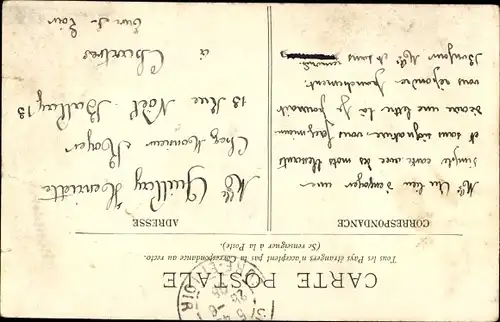 CARTE POSTALE
Tous les Pays étrangers n'acceptent pas la Correspondance au recto.
(Se renseigner à la Poste).
CORRESPONDANCE
Mlle Au lieu d'envoyer une
simple carte avec des mots blessants
et sans signature, vous
décrire une lettre là je pourrait
vous répondre franchement.
Bonjour Mlle et sans
ADRESSE
Mlle Guillay Henriette
Chez Monsieur Royer
13 Rue Noël Ballay 13
à
Chartres
Eure et Loir